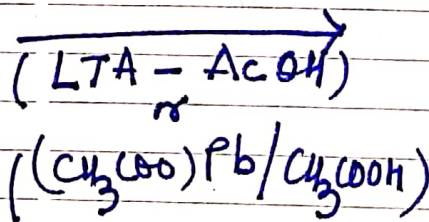 ( LTA - AcOH )
or
( (CH3COO) Pb / CH3COOH )